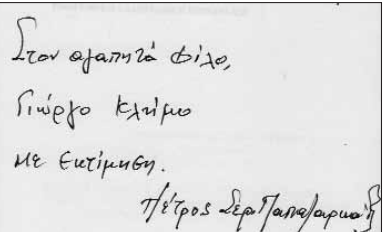 Στον αγαπητό φίλο,
Γιώργο Κλήμο
με εκτίμηση.
Πέτρος Σερ. Παπα